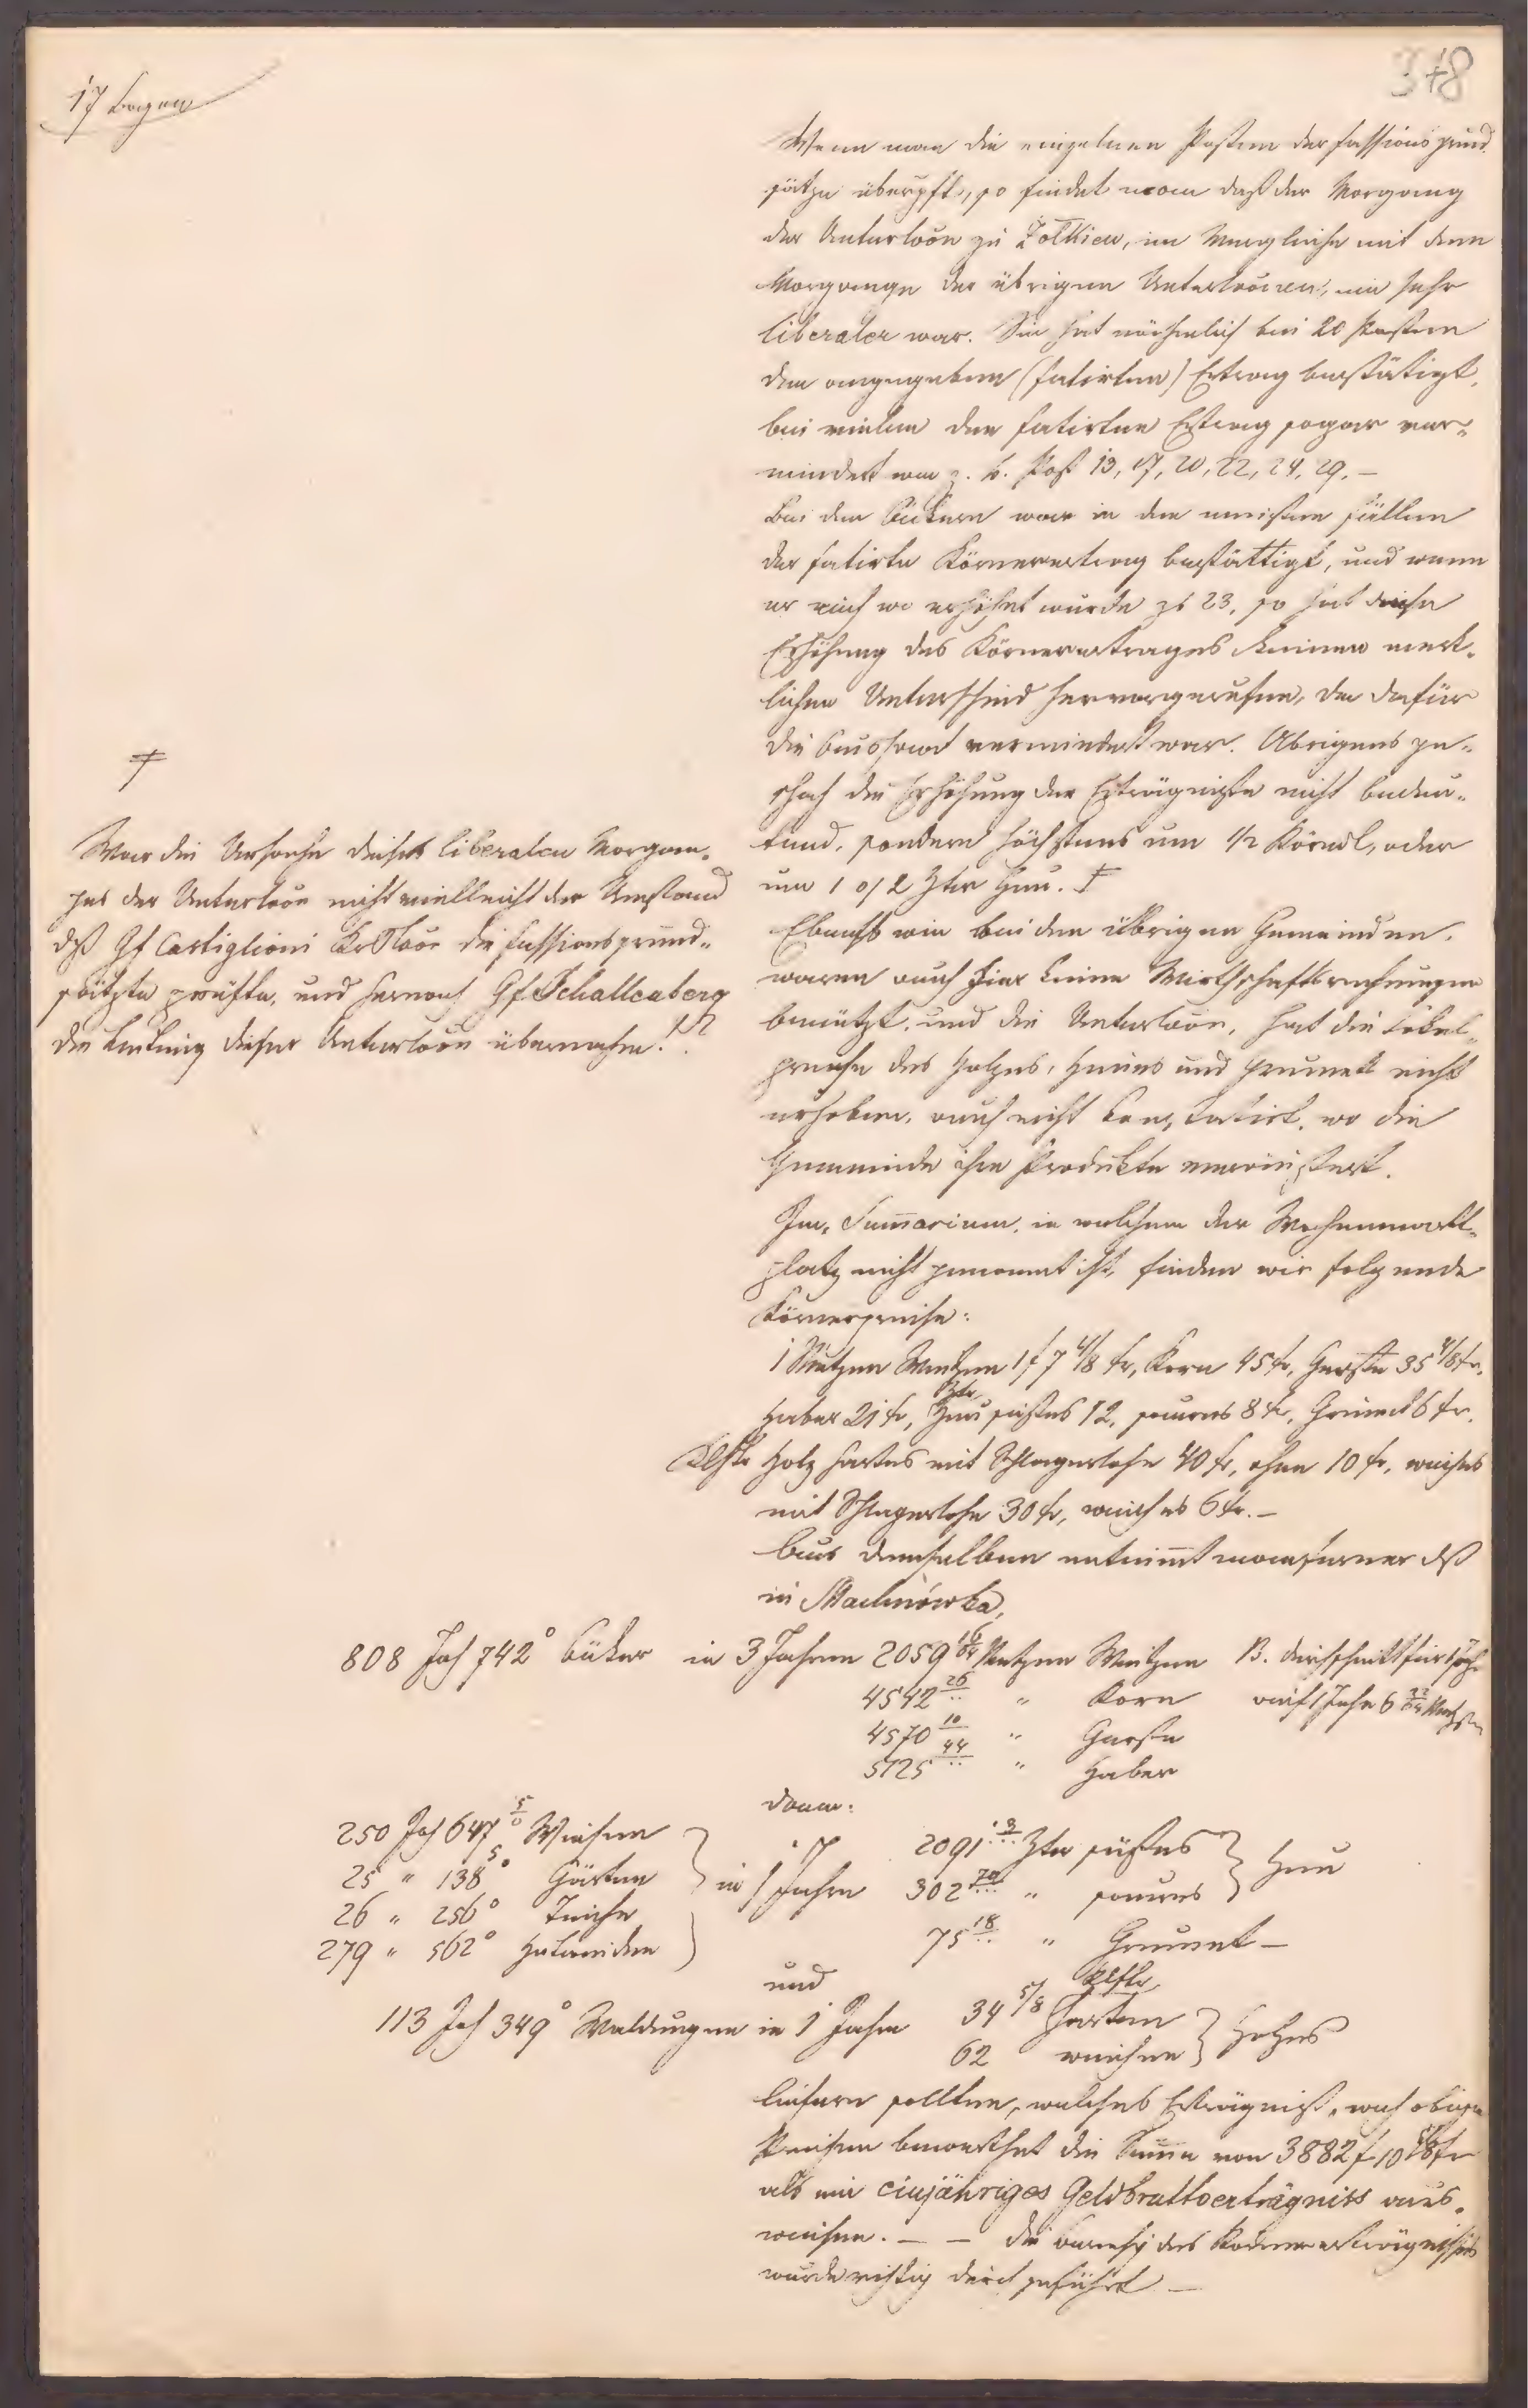 17 Bogen
348
Wenn man die einzelnen Posten der Fassionsgrund
sätze überprft, so findet man daß der Vorgang
der Unterkoon zu Żołkiew, im Vergleiche mit dem
Vorgange der übrigen Unterkoonen, ein sehr
liberaler war. Sie hat nähmlich bei 20 Posten
den angegebenen (fatirten) Ertrag bestätigt,
bei vielen den fatirten Ertrag sogar ver„
mindert wie z. b. Post 13, 17, 20, 22, 24, 29. –
Bei den Äckern war in den meisten Fällen
der fatirte Körnerertrag bestättigt, und wenn
er auch wo erhöhet wurde zb 23, so hat diese
Erhöhung des Körnerertrages keinen merk„
lichen Unterschied hervorgerufen, da dafür
die Aussaat vermindert war. Übrigens ge„
schah die Erhöhung der Erträgniße nicht bedeu„
tend, sondern höchstens um 1/2 Körndl, oder
um 1 o/ 2 Ztr Heu. ‡
‡
War die Ursache dieses liberalen Vorgan„
ges der Unterkoon nicht vielleicht der Umstand
dß Gf Castiglioni die Fassionsgrund„
sätzte prüfte, und hernach Gf Schallenberg
die Leitung dieser Unterkoon übernahm!?
Ebenfls wie bei den übrigen Gemeinden,
waren auch hier keine Wirthschaftsrechnungen
benützt, und die Unterkoon, hat die Lokal„
preise des Holzes, Heues und Grumets nicht
erhoben, auch nicht konstatirt, wo die
Gemeinde ihre Produkte veräußert.
Im Sum̄arium, in welchem der Wochenmarkt„
platz nicht genannt ist, finden wir folgende
Körnerpreise:
1 Metzen Weitzen 1 f 7 4/8 kr, Korn 45 kr, Gerste 35 4/8 kr,
Haber 21 kr, Ztr Heu süßes 12, saures 8 kr, Grumet 6 kr.
Klftr Holz hartes mit Schlagerlohn 40 kr, ohne 10 kr, weiches
mit Schlagerlohn 30 kr, weiches 6 kr. –
Aus demselben entnim̄t man ferner dß
in Machnówka,
808 Joh 742° Äcker in 3 Jahren 2059 Metzen Weitzen durchschnitt für 1 Joh
4542 26 „ Korn auf 1 Jahr 6 Metzen
4570 10 „ Gerste
5125 44 „ Haber
dann:
250 Joh 647° Wiesen 2091 Ztr süßes
25 „ 138° Gärten in 1 Jahre 302 70 „ saures } Heu
26 „ 256° Teiche
279 „ 562° Hutweiden 75 18 „ Grumet –
und Klftr
113 Joh 349° Waldungen in 1 Jahre 34 5/8 harten
62 weichen } Holzes
liefern sollten, welches Erträgniß, nach obigen
Preisen bewerthet die Sum̄e von 3882 f 10 kr
als ein einjähriges Geldbruttoerträgniss aus„
weisen. – – die des Körnererträgnißes
wurde richtig durchgeführt –